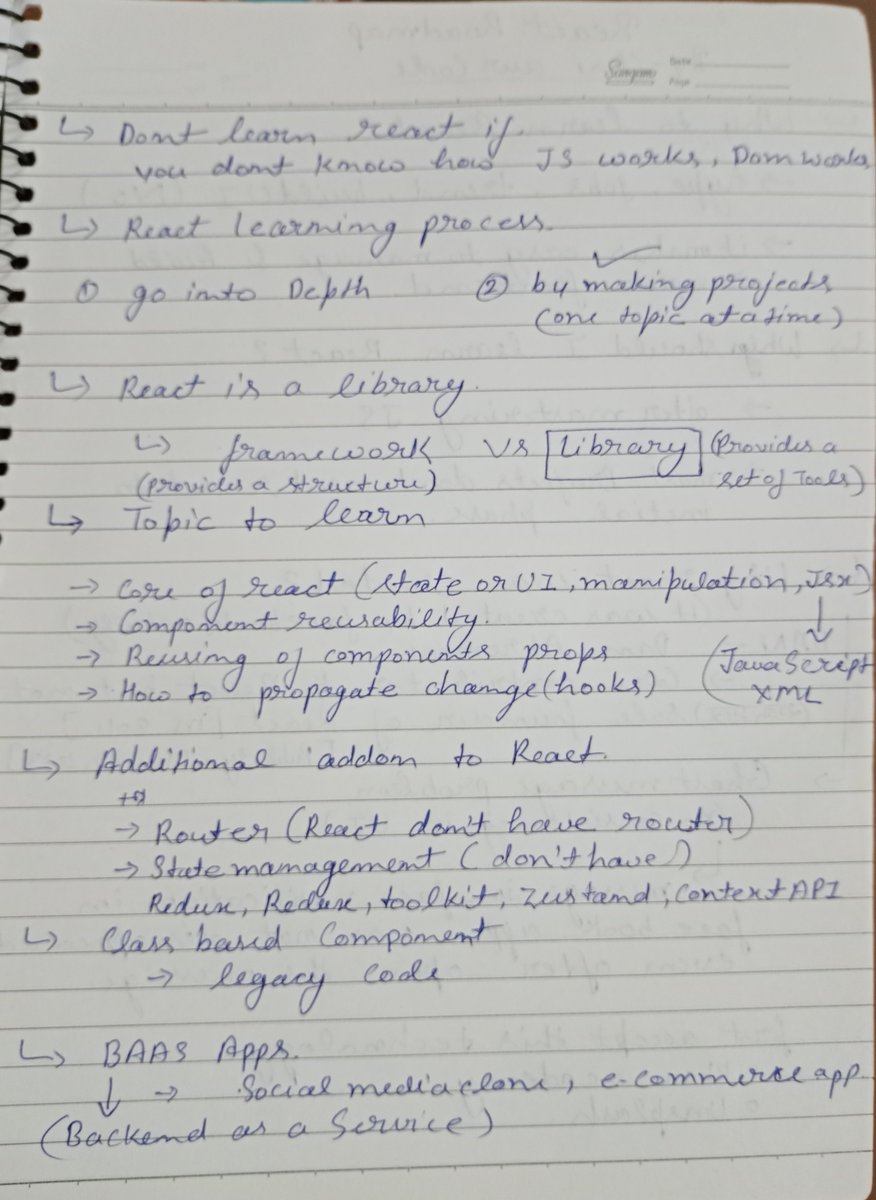 Date
Page
↳ Dont learn react if
you dont know how JS works, Dom works
↳ React learning process.
① go into Depth ② by making projects ✓
(one topic at a time)
↳ React is a library.
↳ framework vs Library (Provides a
(provides a structure) set of Tools)
↳ Topic to learn
→ Core of react (state or UI, manipulation, JSX)
→ Component reusability.
→ Reusing of components props
→ How to propagate change (hooks)
(JavaScript
XML
↳ Additional addon to React.
→ Router (React don't have router)
→ State management (don't have)
Redux, Redux, toolkit, Zustand, Context API
↳ Class based Component
→ legacy code
↳ BAAS Apps.
→ Social media clone, e-commerce app
(Backend as a Service)